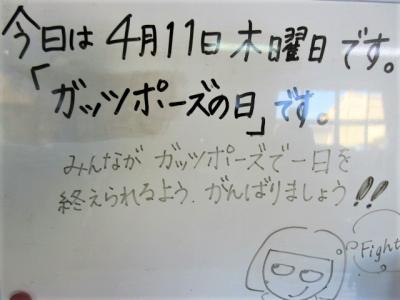 今日は4月11日木曜日です。
「ガッツポーズの日」です。
みんながガッツポーズで一日を
終えられるよう、がんばりましょう!!
Fight